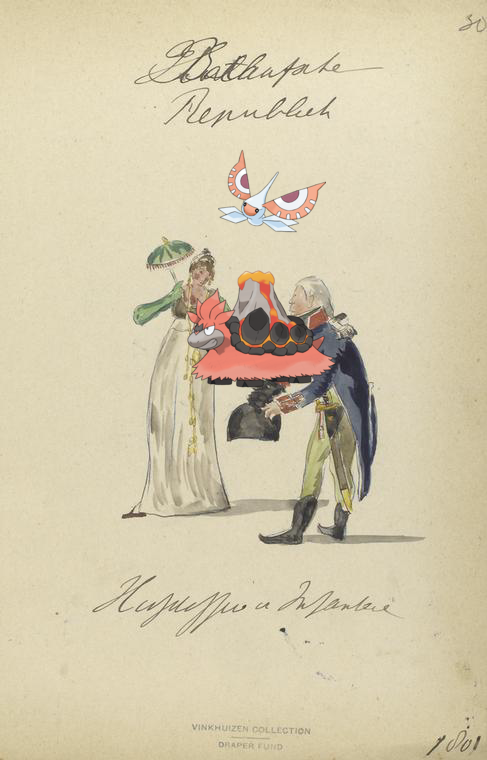 30
Bataafsche
Republiek
Infanterie
VINKHUIZEN COLLECTION
DRAPER FUND
1801